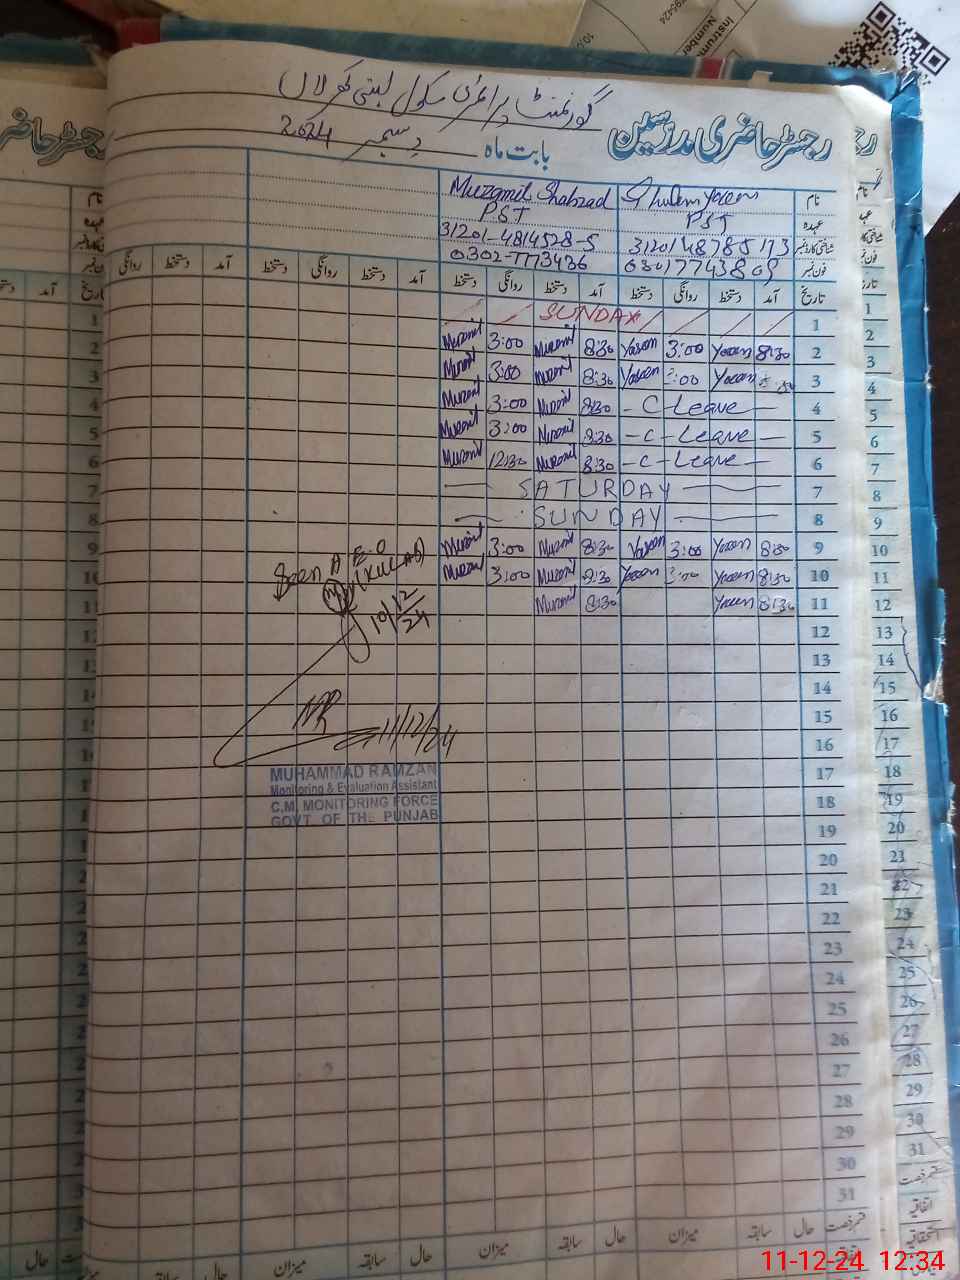 گورنمنٹ پرائمری سکول بستی کھرلاں
رجسٹر حاضری مدرسین
بابت ماہ دسمبر 2024
نام Ghulam Yaseen Muzamil Shahzad
عہدہ PST PST
شناختی کارڈ نمبر 31201-4814528-5
فون نمبر 03017743809 0302-7773436
تاریخ آمد دستخط روانگی دستخط آمد دستخط روانگی دستخط آمد دستخط روانگی دستخط آمد دستخط روانگی
1 SUNDAY
2 8:30 Yaseen 3:00 Yaseen 8:30 Muzamil 3:00 Muzamil
3 Yaseen 3:00 Yaseen 8:30 Muzamil 3:00 Muzamil
4 - C - Leave - 8:30 Muzamil 3:00 Muzamil
5 - C - Leave - 8:30 Muzamil 3:00 Muzamil
6 - C - Leave - 8:30 Muzamil 12:30 Muzamil
7 SATURDAY
8 SUNDAY
9 8:30 Yaseen 3:00 Yaseen 8:30 Muzamil 3:00 Muzamil
10 8:30 Yaseen 3:00 Yaseen 8:30 Muzamil 3:00 Muzamil
11 8:30 Yaseen 8:30 Muzamil
12
13
14
15
16
17
18
19
20
21
22
23
24
25
26
27
28
29
30
31
قسم رخصت حال سابقہ میزان حال سابقہ میزان حال سابقہ میزان حال
Seen A E O
10/12/24
MR
11/12/24
MUHAMMAD RAMZAN
Monitoring & Evaluation Assistant
C.M. MONITORING FORCE
GOVT. OF THE PUNJAB
Instrum
Number
11-12-24 12:34